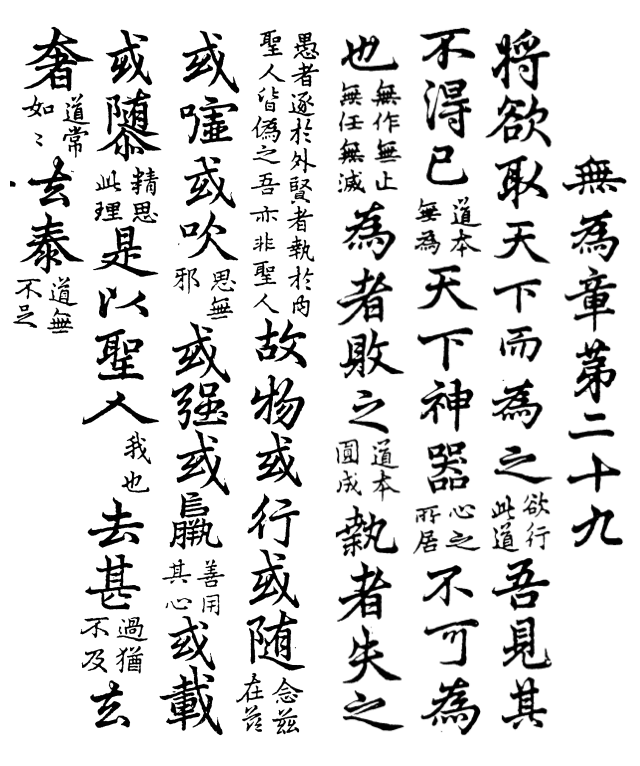 無為章第二十九
將欲取天下而為之欲行此道吾見其
不得已道本無為天下神器心之所居不可為
也無作無止無任無滅為者敗之道本圓成執者失之
愚者逐於外賢者執於內聖人皆偽之吾亦非聖人故物或行或随念茲在茲
或嘘或吹思無邪或强或羸善用其心或載
或隳精思此理是以聖人我也去甚過猶不及去
奢道常如〻去泰道無不足